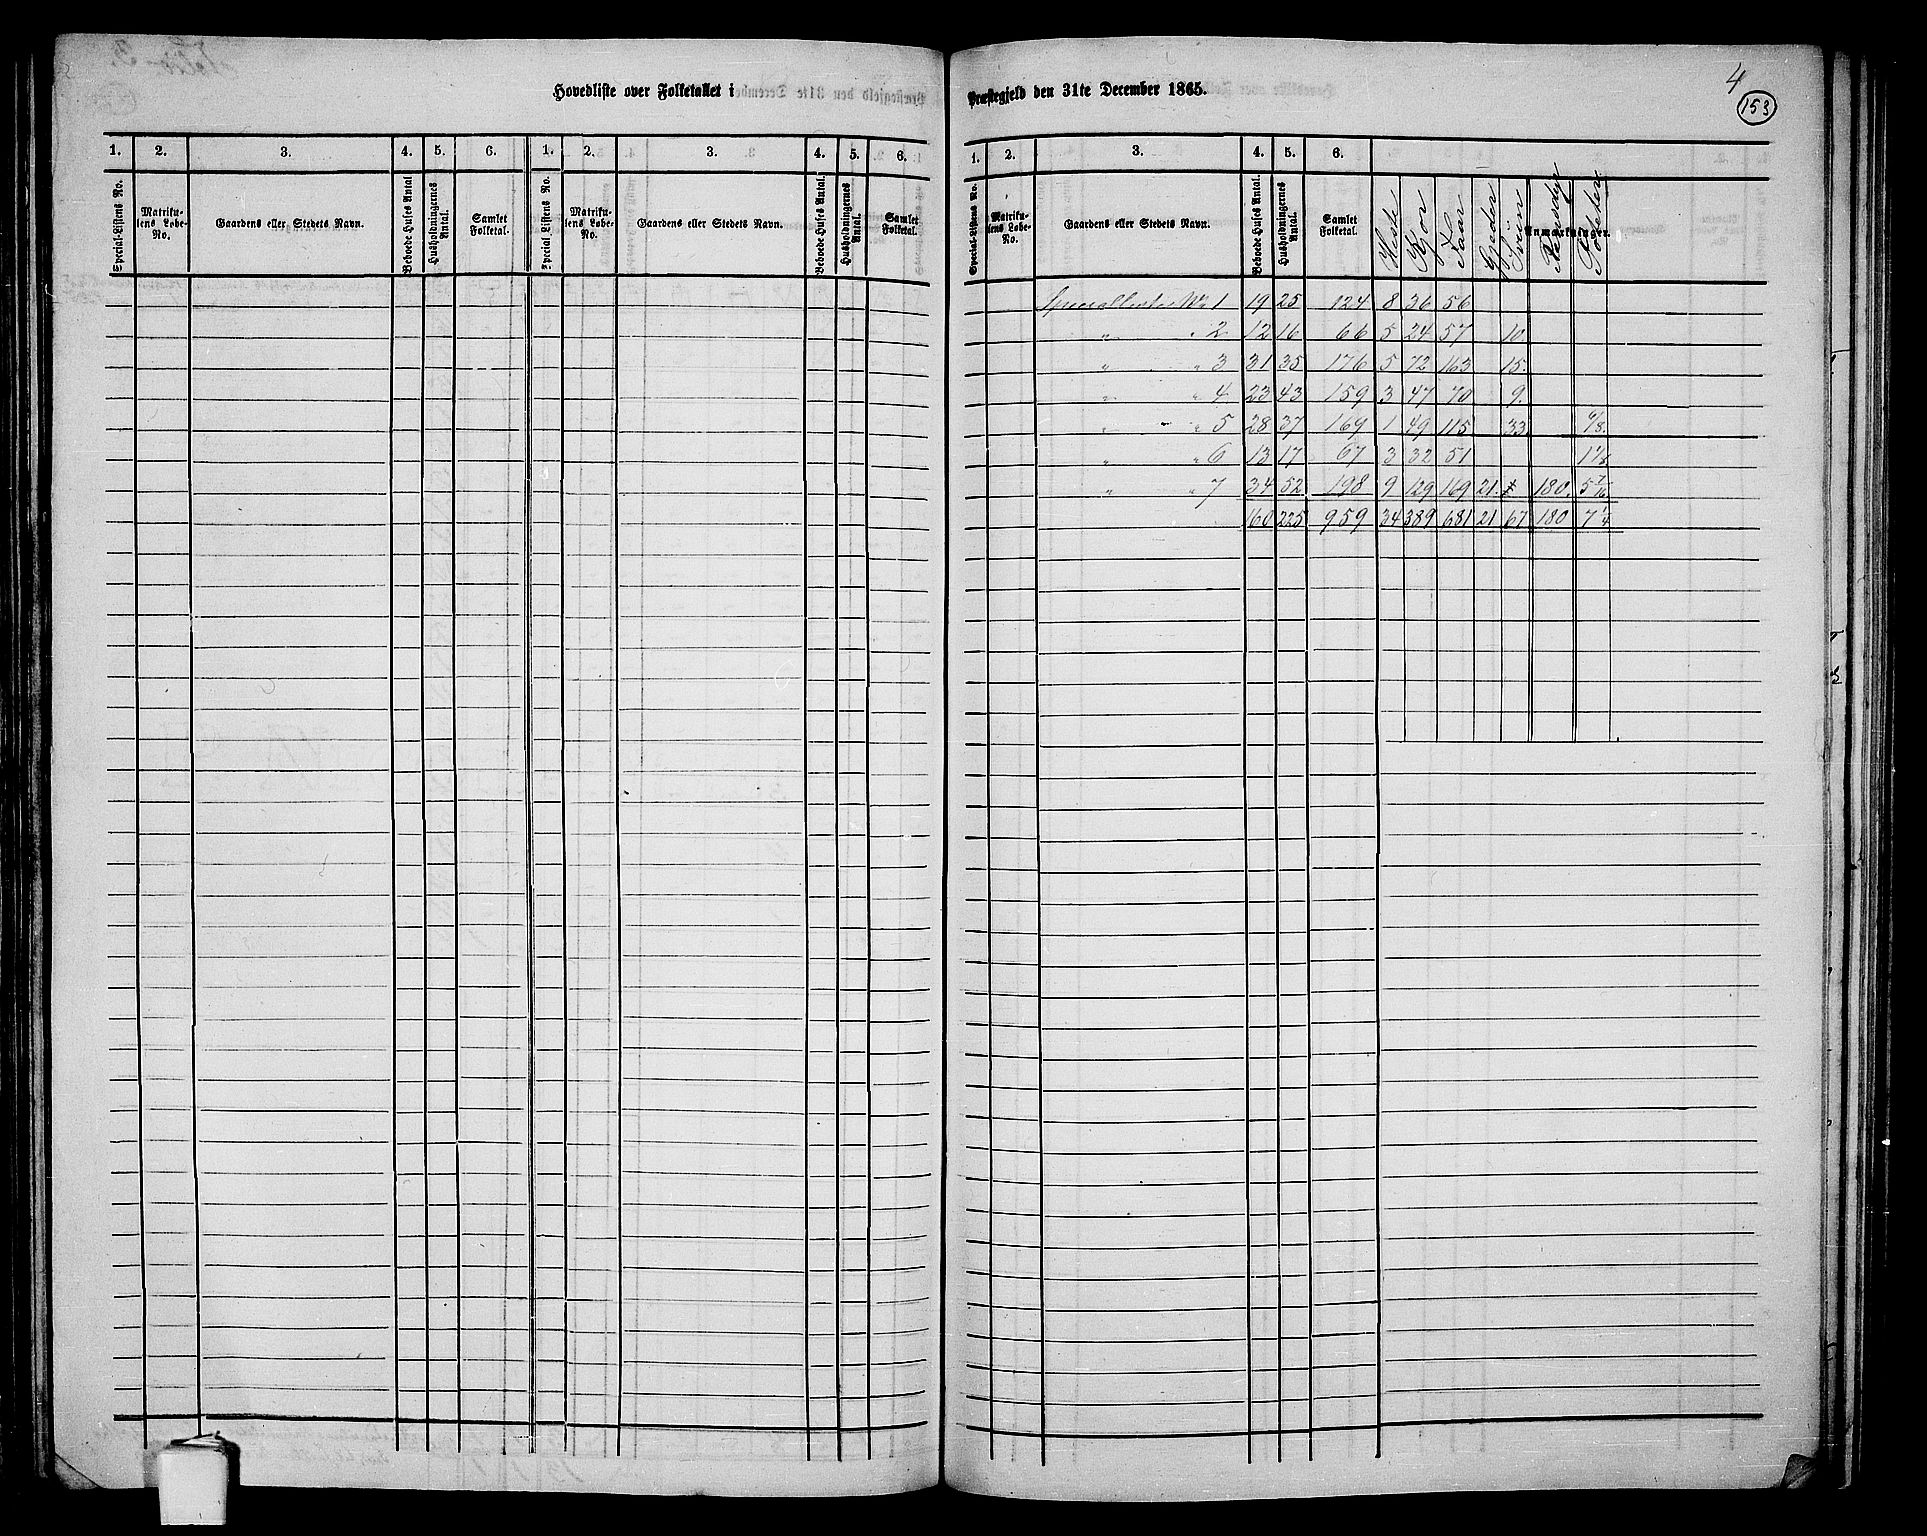 4
153
Hovedliste over Folketallet i
Præstegjeld den 31te December 1865.
1. 2. 3. 4. 5. 6. 1. 2. 3. 4. 5. 6.
Special-Listens No. Matriku-lens Løbe-No. Gaardens eller Stedets Navn. Beboede Huses Antal. Husholdningernes Antal. Samlet Folketal. Special-Listens No. Matriku-lens Løbe-No. Gaardens eller Stedets Navn. Beboede Huses Antal. Husholdningernes Antal. Samlet Folketal.
1. 2. 3. 4. 5. 6.
Special-Listens No. Matriku-lens Løbe-No. Gaardens eller Stedets Navn. Beboede Huses Antal. Husholdningernes Antal. Samlet Folketal. Anmærkninger.
Heste Kjør Faar Gjeder Sviin Rensdyr
Specialliste No 1 19 25 124 8 36 56
" " 2 12 16 66 5 24 57 10.
" " 3 31 35 176 5 72 163 15.
" " 4 23 43 159 3 47 70 9.
" " 5 28 37 169 1 49 115 33.
" " 6 13 17 67 3 32 51
" " 7 34 52 198 9 129 169 21. 180. 5 7/16
160 225 959 34 389 681 21 67 180 7 1/4